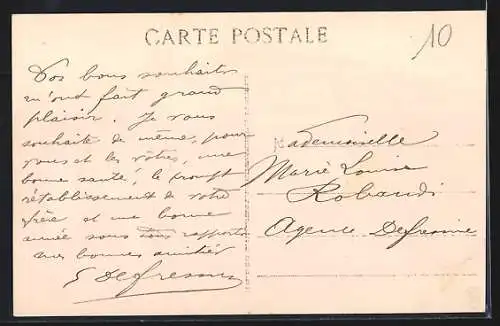 CARTE POSTALE
10
Vos bons souhaits
m'ont fait grand
plaisir. Je vous
souhaite de même, pour
vous et les vôtres, une
bonne santé, le prompt
rétablissement de votre
frère et une bonne
année sous tous rapports
mes bonnes amitiés
G Defresne
Mademoiselle
Marie Louise
Robaudi
Agence Defresne